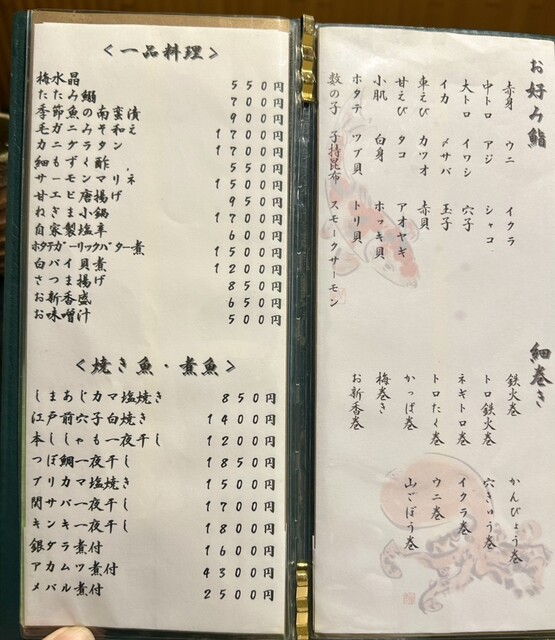 ＜一品料理＞
梅水晶 550円
たたみ鰯 700円
季節魚の南蛮漬 900円
毛ガニみそ和え 1700円
カニグラタン 1700円
細もずく酢 550円
サーモンマリネ 1500円
甘エビ唐揚げ 950円
ねぎま小鍋 1700円
自家製塩辛 600円
ホタテガーリックバター煮 1500円
白バイ貝煮 1200円
さつま揚げ 850円
お新香盛 650円
お味噌汁 500円
＜焼き魚・煮魚＞
しまあじカマ塩焼き 850円
江戸前穴子白焼き 1400円
本ししゃも一夜干し 1200円
つぼ鯛一夜干し 1850円
ブリカマ塩焼き 1500円
関サバ一夜干し 1700円
キンキ一夜干し 1800円
銀ダラ煮付 1600円
アカムツ煮付 4300円
メバル煮付 2500円
お好み鮨
赤身 ウニ イクラ
中トロ アジ シャコ
大トロ イワシ 穴子
イカ 〆サバ 玉子
車えび カツオ 赤貝
甘えび タコ アオヤギ
小肌 白身 ホッキ貝
ホタテ ツブ貝 トリ貝
数の子 子持昆布 スモークサーモン
細巻き
鉄火巻 かんぴょう巻
トロ鉄火巻 穴きゅう巻
ネギトロ巻 イクラ巻
トロたく巻 ウニ巻
かっぱ巻 山ごぼう巻
梅巻き
お新香巻